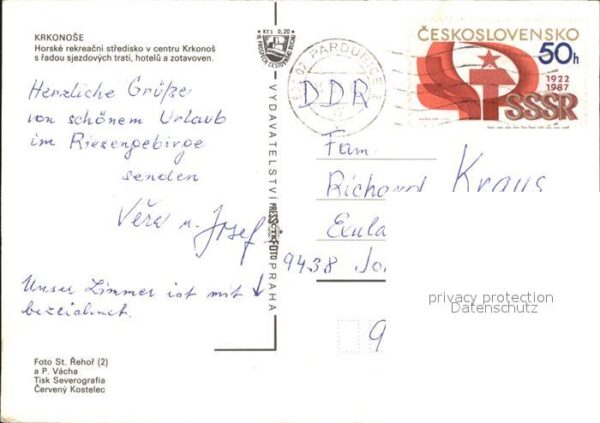 KRKONOŠE
Horské rekreační středisko v centru Krkonoš
s řadou sjezdových tratí, hotelů a zotavoven.
Herzliche Grüße
von schönem Urlaub
im Riesengebirge
senden
Věra u. Josef
Unser Zimmer ist mit ↓
bezeichnet.
Foto St. Řehoř (2)
a P. Vácha
Tisk Severografia
Červený Kostelec
Kčs 0,20
VYDAVATELSTVÍ PRESSFOTO PRAHA
PARDUBICE 2
ČESKOSLOVENSKO
50h
1922
1987
SSSR
DDR
Fam.
Richard Kraus
9438
9
privacy protection
Datenschutz